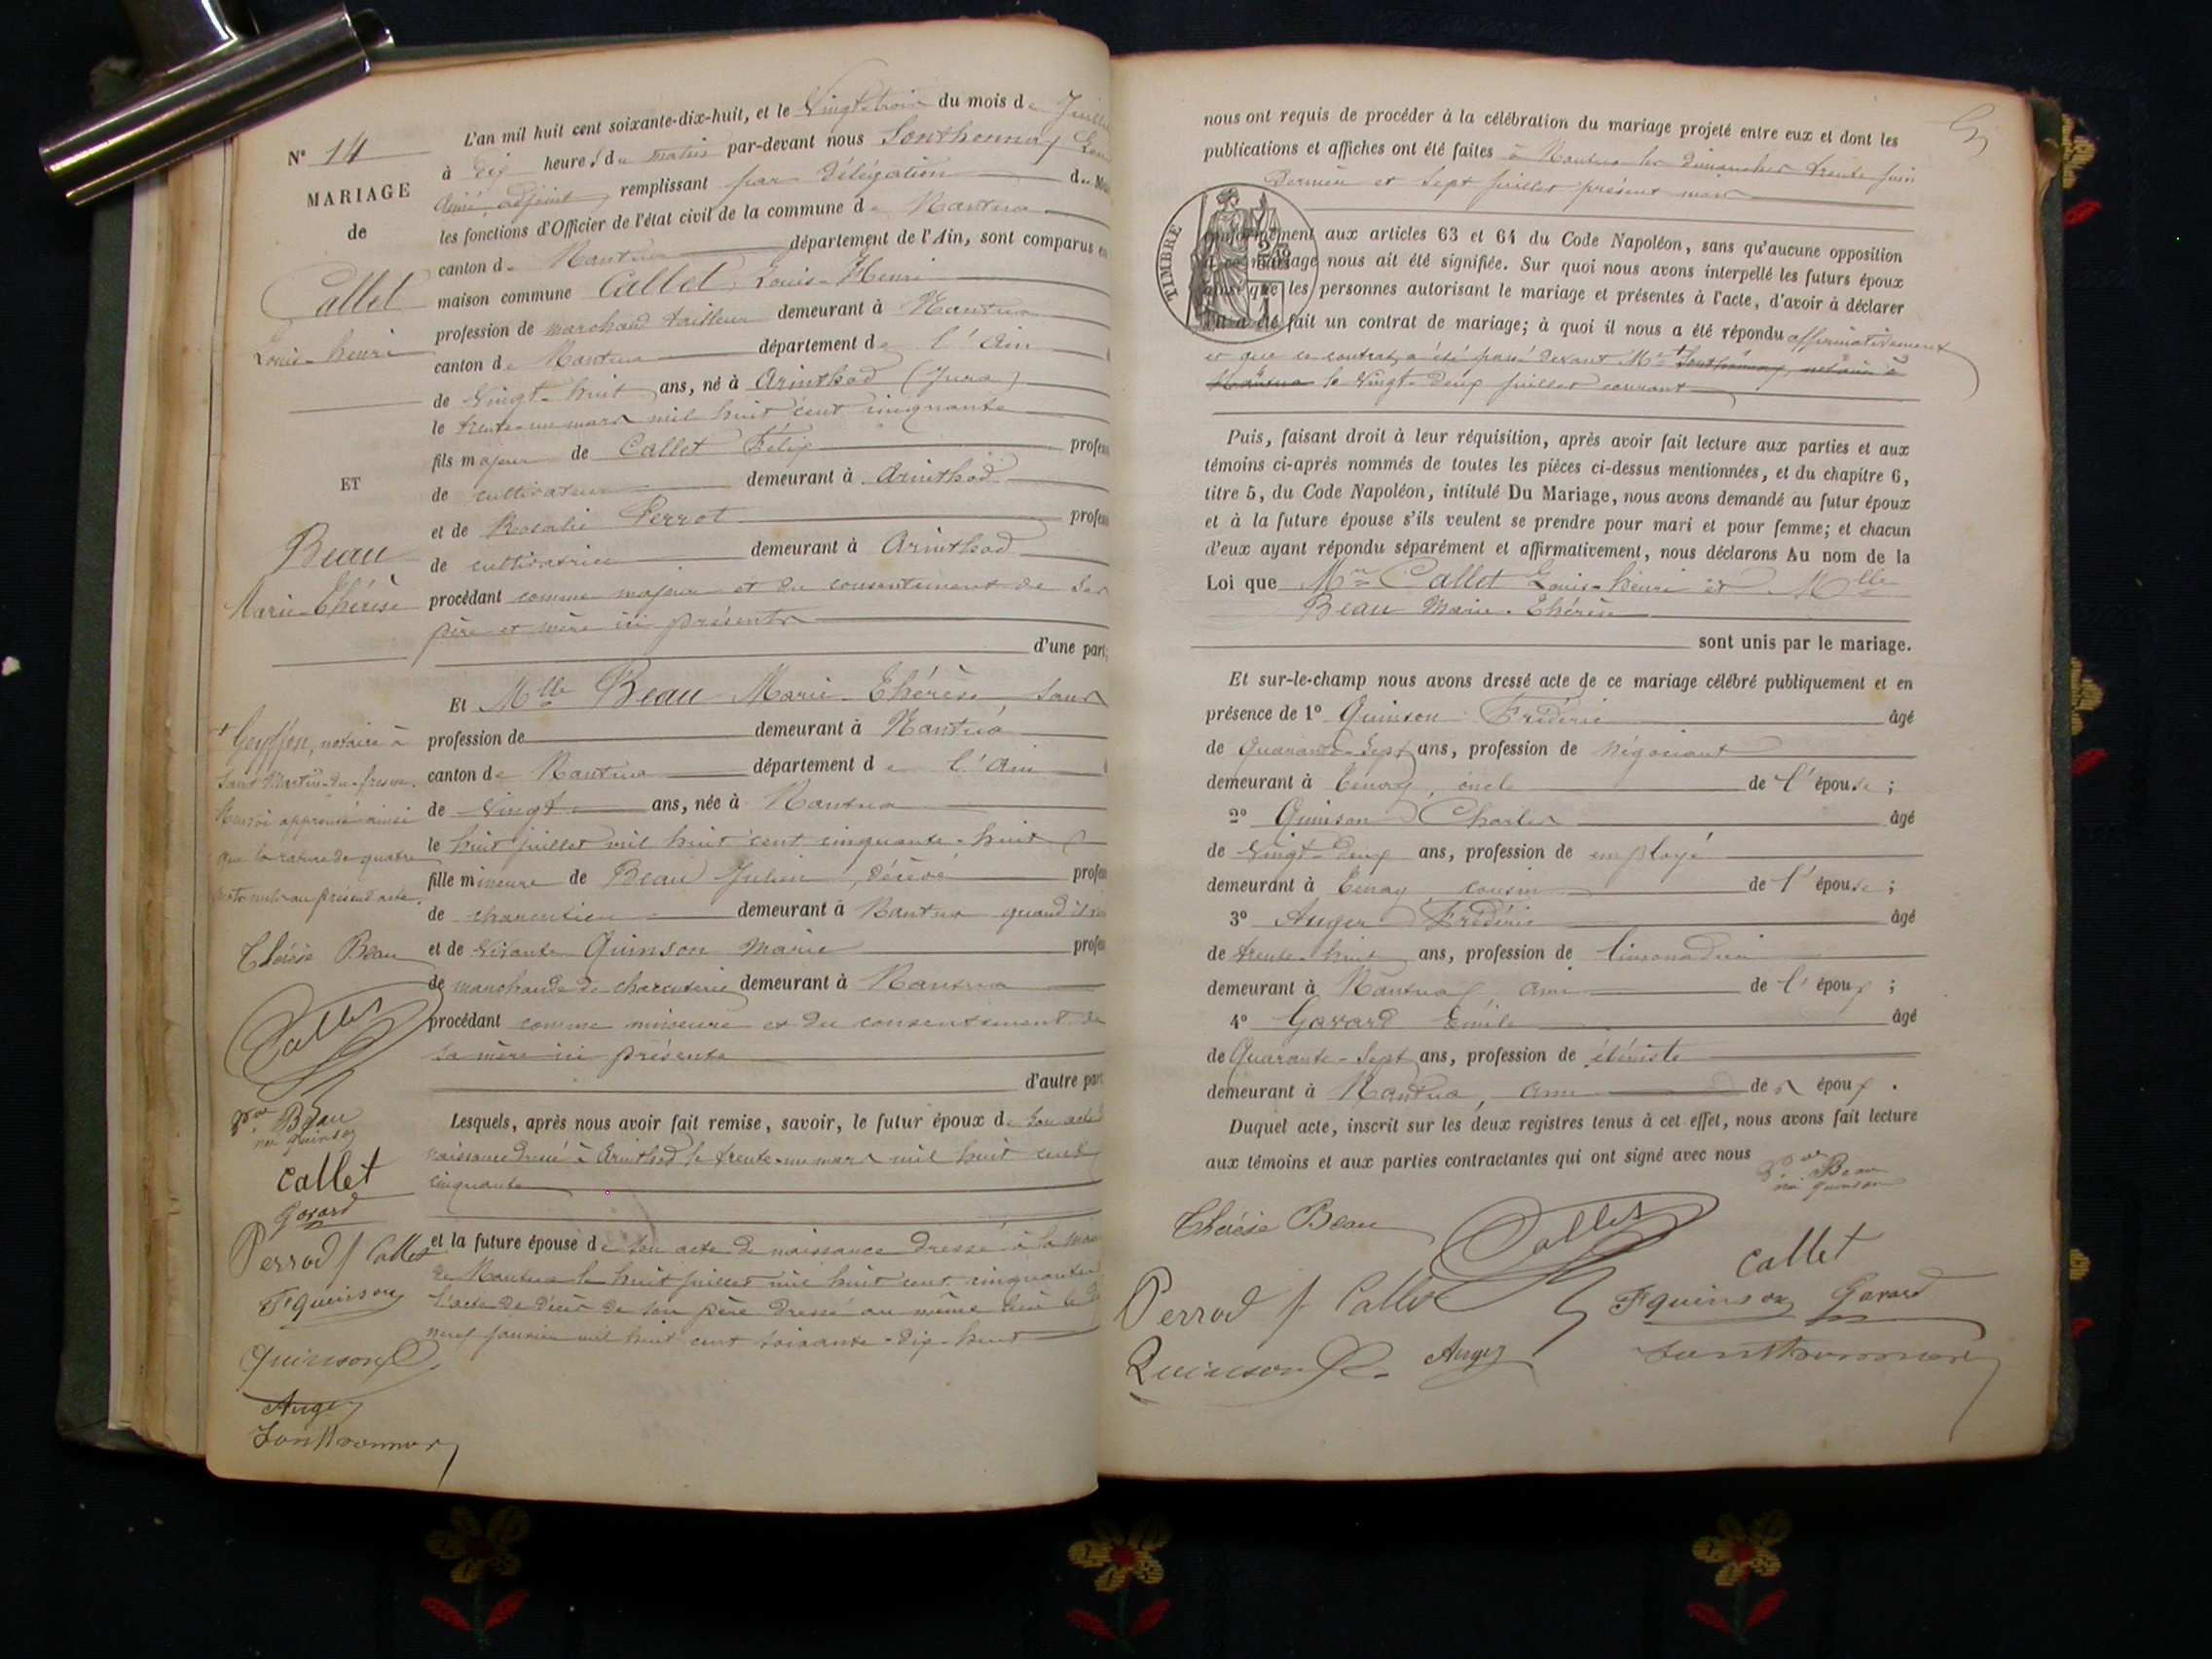 N° 14
MARIAGE
de
Callet
Louis-henri
ET
Beau
Marie-Thérèse
L'an mil huit cent soixante-dix-huit, et le Vingt-trois du mois de Juillet
à dix heures du matin par-devant nous Sonthonnax
adjoint remplissant par délégation du
les fonctions d'Officier de l'état civil de la commune de Nantua
canton de Nantua département de l'Ain, sont comparus en
maison commune Callet, Louis-Henri
profession de marchand tailleur demeurant à Nantua
canton de Nantua département de l'Ain
de Vingt-huit ans, né à Arinthod (Jura)
le trente-un mars mil huit cent cinquante
fils majeur de Callet Félix profess
de cultivateur demeurant à Arinthod
et de Rosalie Perrot profess
de cultivatrice demeurant à Arinthod
procédant comme majeur et du consentement de ses
père et mère ici présents
d'une part;
Et Mlle Beau Marie-Thérèse, sans
profession de demeurant à Nantua
canton de Nantua département de l'Ain
de Vingt ans, née à Nantua
le huit juillet mil huit cent cinquante-huit
fille mineure de Beau Julien, décédé profes
de charcutier demeurant à Nantua quand il
et de vivante Quinson Marie profes
de marchande de charcuterie demeurant à Nantua
procédant comme mineure et du consentement de
sa mère ici présente
d'autre part
Lesquels, après nous avoir fait remise, savoir, le futur époux de son acte
naissance dressé à Arinthod le trente-un mars mil huit cent
cinquante
et la future épouse de son acte de naissance dressé à la
de Nantua le huit juillet mil huit cent cinquante
l'acte de décès de son père dressé au même lieu le
neuf janvier mil huit cent soixante-dix-huit
notaire à
Saint-Martin-du-fresne.
Renvoi approuvé ainsi
que la rature de quatre
mots nuls au présent acte.
Thérèse Beau
Callet
Beau
née Quinson
Callet
Gavard
Perrod f Callet
F Quinson
Quinson C.
Auger
Sonthonnax
nous ont requis de procéder à la célébration du mariage projeté entre eux et dont les
publications et affiches ont été faites à Nantua les dimanches trente juin
dernier et sept juillet présent mois
TIMBRE
conformément aux articles 63 et 64 du Code Napoléon, sans qu'aucune opposition
à ce mariage nous ait été signifiée. Sur quoi nous avons interpellé les futurs époux
ainsi que les personnes autorisant le mariage et présentes à l'acte, d'avoir à déclarer
s'il a été fait un contrat de mariage; à quoi il nous a été répondu affirmativement
et que ce contrat a été passé devant Me + Sonthonnax, notaire à
Nantua le Vingt-deux juillet courant
Puis, faisant droit à leur réquisition, après avoir fait lecture aux parties et aux
témoins ci-après nommés de toutes les pièces ci-dessus mentionnées, et du chapitre 6,
titre 5, du Code Napoléon, intitulé Du Mariage, nous avons demandé au futur époux
et à la future épouse s'ils veulent se prendre pour mari et pour femme; et chacun
d'eux ayant répondu séparément et affirmativement, nous déclarons Au nom de la
Loi que Mr Callet Louis-henri et Mlle
Beau Marie-Thérèse
sont unis par le mariage.
Et sur-le-champ nous avons dressé acte de ce mariage célébré publiquement et en
présence de 1° Quinson Frédéric âgé
de Quarante-Sept ans, profession de négociant
demeurant à Tenay, oncle de l'épouse;
2° Quinson Charles âgé
de Vingt-deux ans, profession de employé
demeurant à Tenay cousin de l'épouse;
3° Auger Frédéric âgé
de trente-huit ans, profession de limonadier
demeurant à Nantua, ami de l'époux;
4° Gavard Emile âgé
de Quarante-Sept ans, profession de ébéniste
demeurant à Nantua, ami de s époux.
Duquel acte, inscrit sur les deux registres tenus à cet effet, nous avons fait lecture
aux témoins et aux parties contractantes qui ont signé avec nous
Beau
née Quinson
Thérèse Beau
Callet
Callet
Perrod f Callet
F Quinson
Gavard
Quinson C.
Auger
Sonthonnax